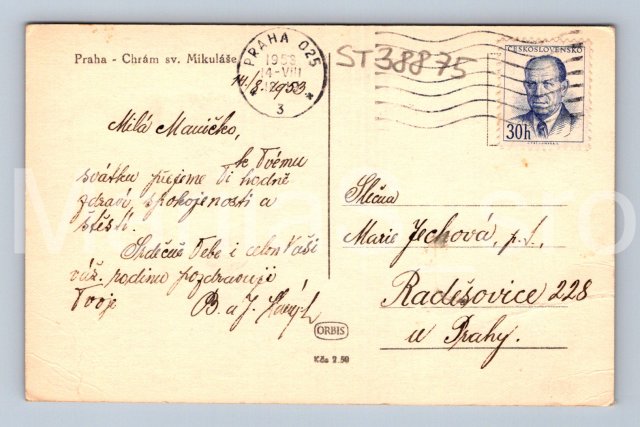 Praha - Chrám sv. Mikuláše
PRAHA 025
14-VIII
3
ST38875
ČESKOSLOVENSKO
30h
14./8. 1953.
Milá Mauičko,
k Tvému
svátku přejeme Ti hodně
zdraví, spokojenosti a
štěstí.
Srdečně Tebe i celou Vaši
váž. rodinu pozdravují
Tvoje B. a J.
Slečna
Marie Jechová, p. l.,
Raděšovice 228
u Prahy.
ORBIS
Kčs 2.50